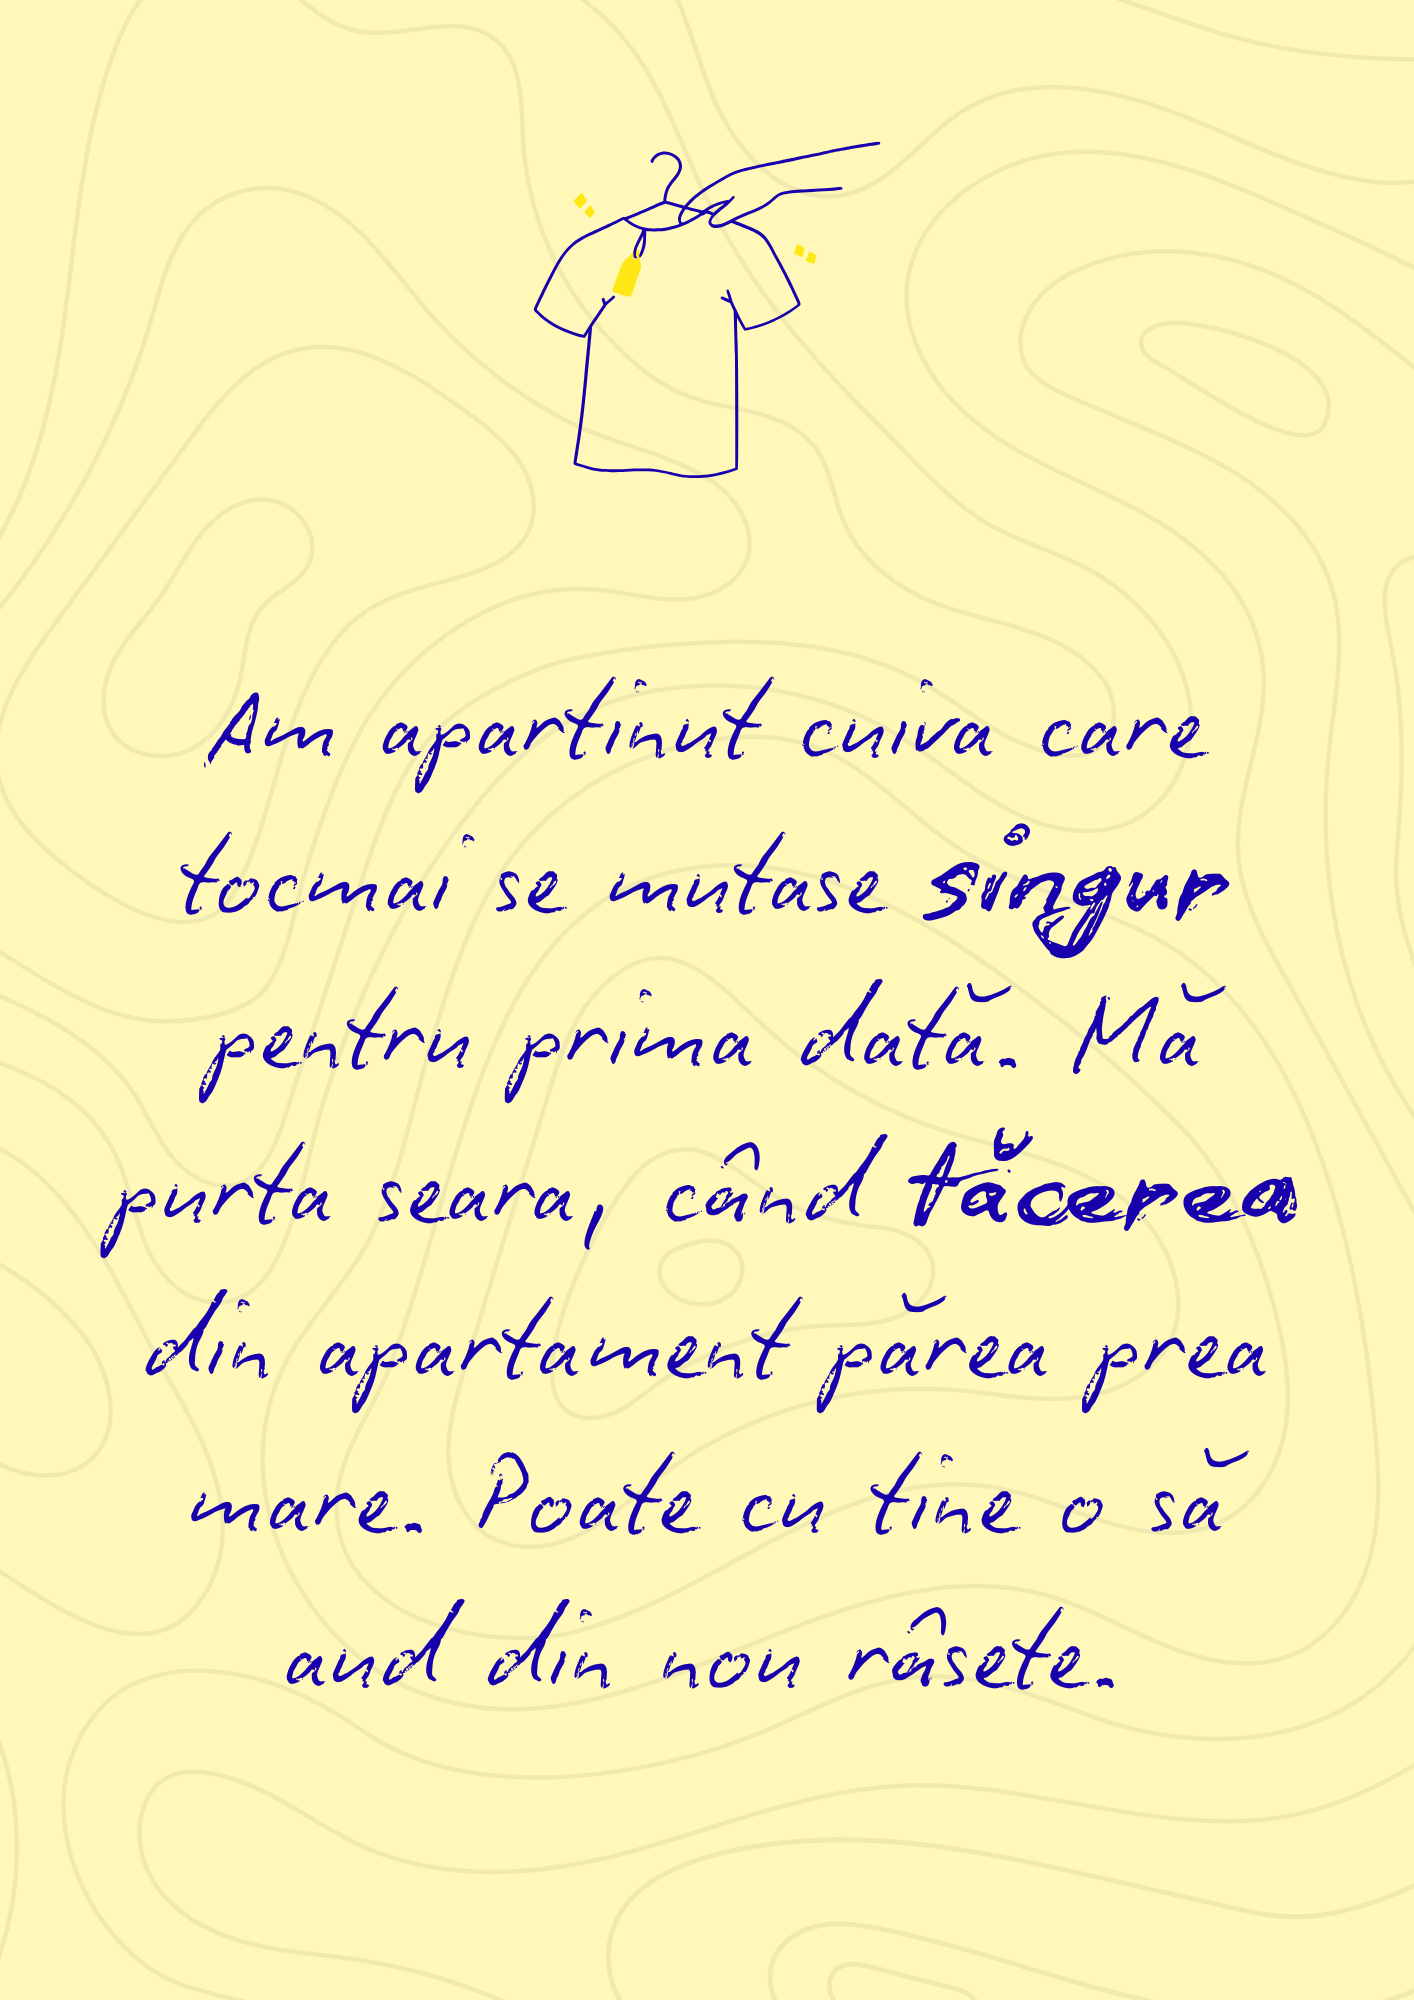 Am apartinut cuiva care
tocmai se mutase singur
pentru prima dată. Mă
purta seara, când tăcerea
din apartament părea prea
mare. Poate cu tine o să
aud din nou râsete.